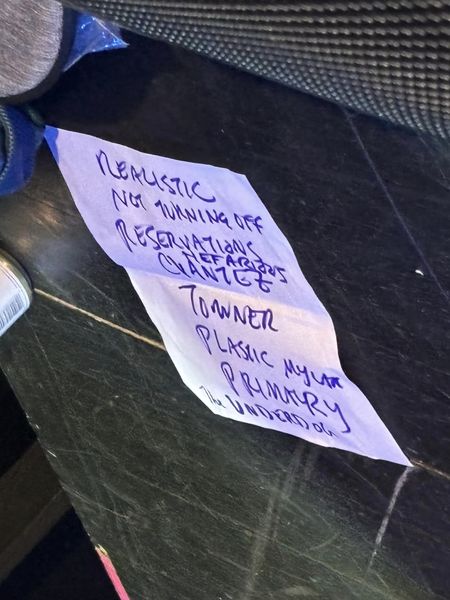 REALISTIC
NOT TURNING OFF
RESERVATIONS
NEFARIOUS
CHANTEZ
TOWNER
PLASTIC MYLAR
PRIMARY
The UNDERDOG